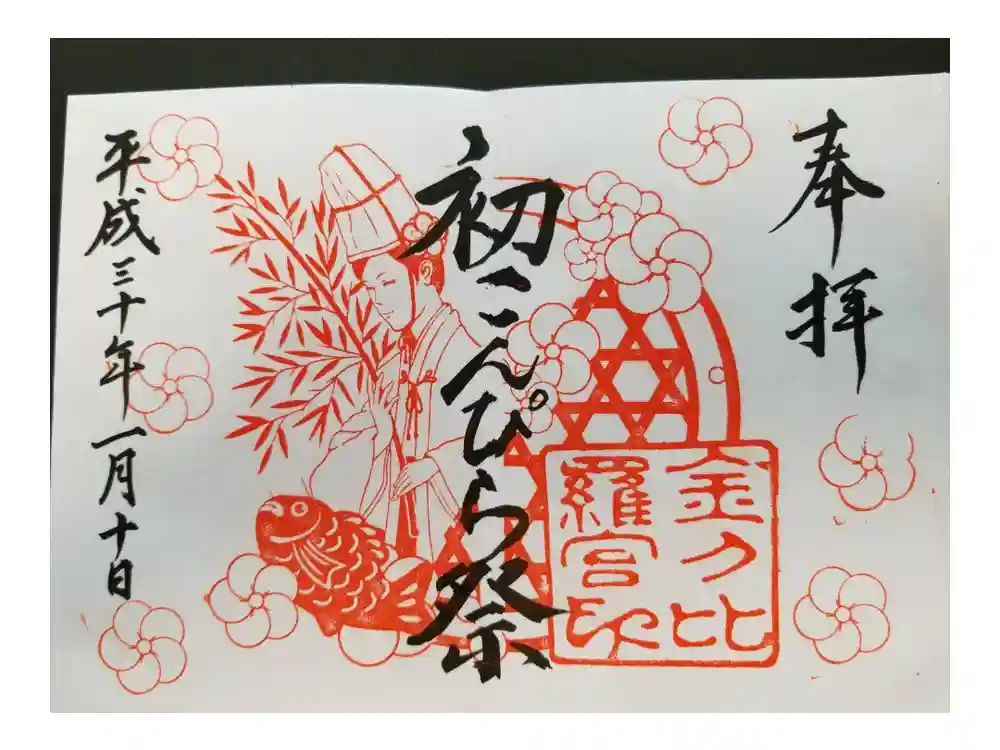 奉拝
初こんぴら祭
金ノ比
羅宮印
平成三十年一月十日